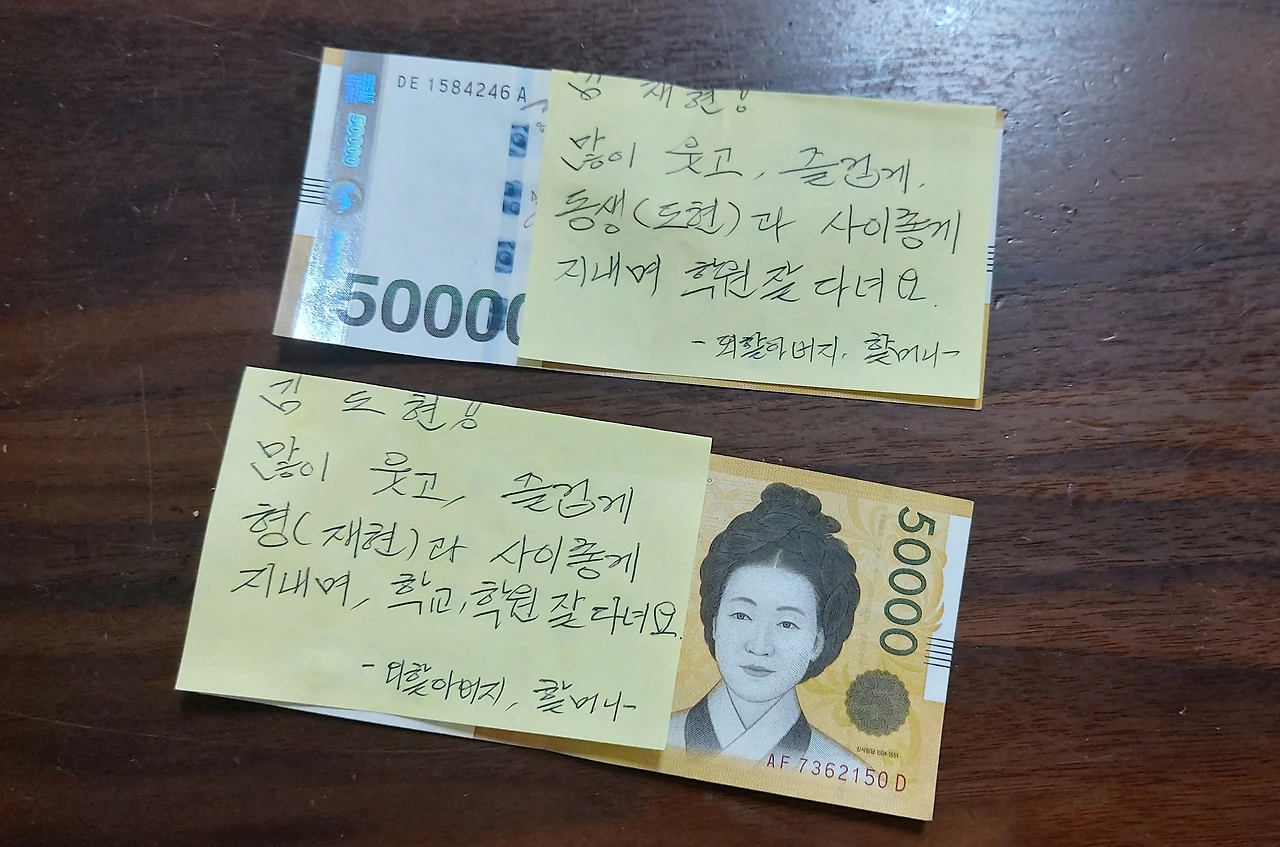 DE 1584246 A
50000
50000
김 재현!
많이 웃고, 즐겁게,
동생(도현)과 사이좋게
지내며 학원 잘 다녀요.
- 외할아버지, 할머니 -
김 도현!
많이 웃고, 즐겁게
형(재현)과 사이좋게
지내며, 학교, 학원 잘 다녀요.
- 외할아버지, 할머니 -
50000
신사임당 1504-1551
AF 7362150 D